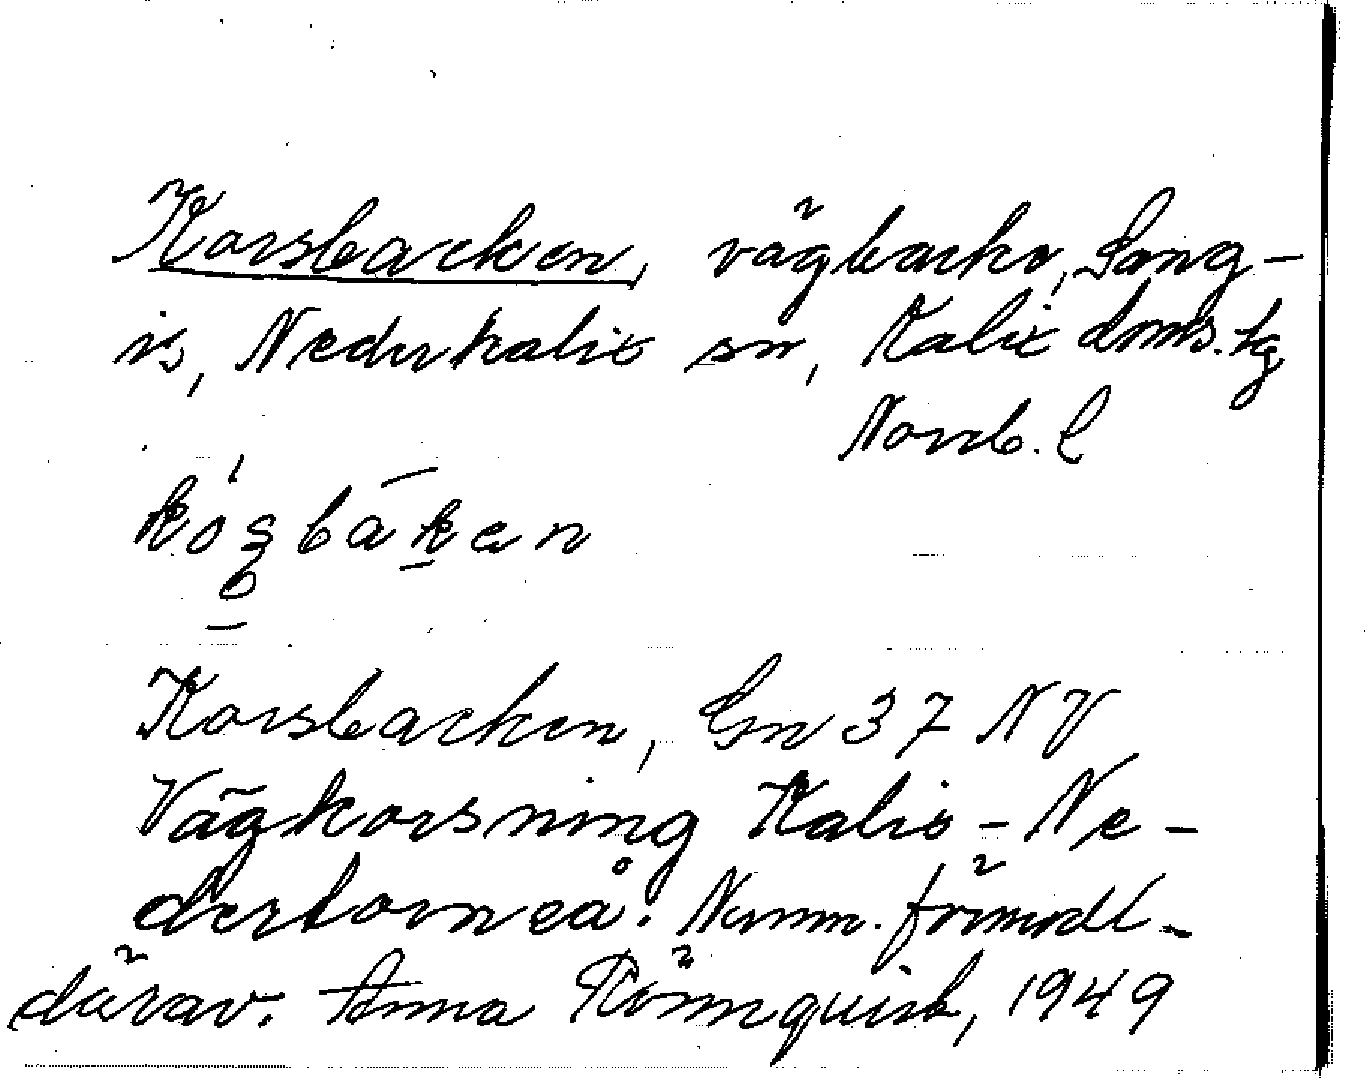 Korsbacken, vägbacke, Sang-
is, Nederkalix sn, Kalix doms. tg
Norrb. l
Korsbacken, Gn 37 NV
Vägkorsning Kalix - Ne-
dertorneå. Namn. förmodl-
därav. Anna Rönnquist, 1949